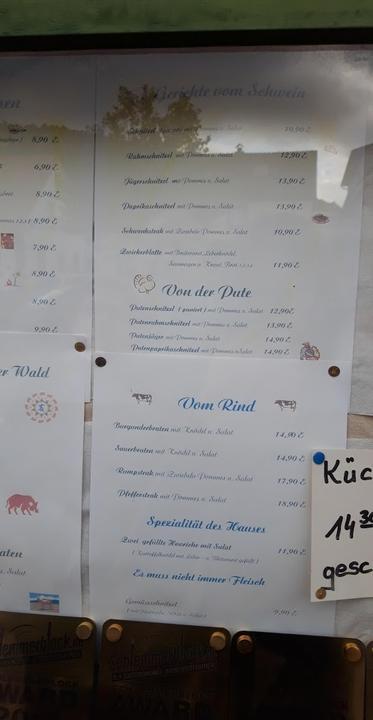 Gerichte vom Schwein
Schnitzel mit Pommes u. Salat 10,90 €
Rahmschnitzel mit Pommes u. Salat 12,90 €
Jägerschnitzel mit Pommes u. Salat 13,90 €
Paprikaschnitzel mit Pommes u. Salat 13,90 €
Schwenksteak mit Zwiebeln Pommes u. Salat 10,90 €
mit Bratwurst, Leberknödel,
11,90 €
Von der Pute
Putenschnitzel ( paniert ) mit Pommes u. Salat 12,90 €
Putenrahmschnitzel mit Pommes u. Salat 13,90 €
Putenjäger mit Pommes u. Salat 14,90 €
Putenpaprikaschnitzel mit Pommes u. Salat 14,90 €
Vom Rind
Burgunderbraten mit Knödel u. Salat 14,90 €
Sauerbraten mit Knödel u. Salat 14,90 €
Rumpsteak mit Zwiebeln Pommes u. Salat 17,90 €
Pfeffersteak mit Pommes u. Salat 18,90 €
Spezialität des Hauses
Zwei gefüllte Hoorische mit Salat 11,90 €
Es muss nicht immer Fleisch
Gemüseschnitzel
9,90 €
8,90 €
6,90 €
8,90 €
8,90 €
7,90 €
8,90 €
8,90 €
9,90 €
er Wald
aten
Salat
Küc
14 30
gesc
AWARD